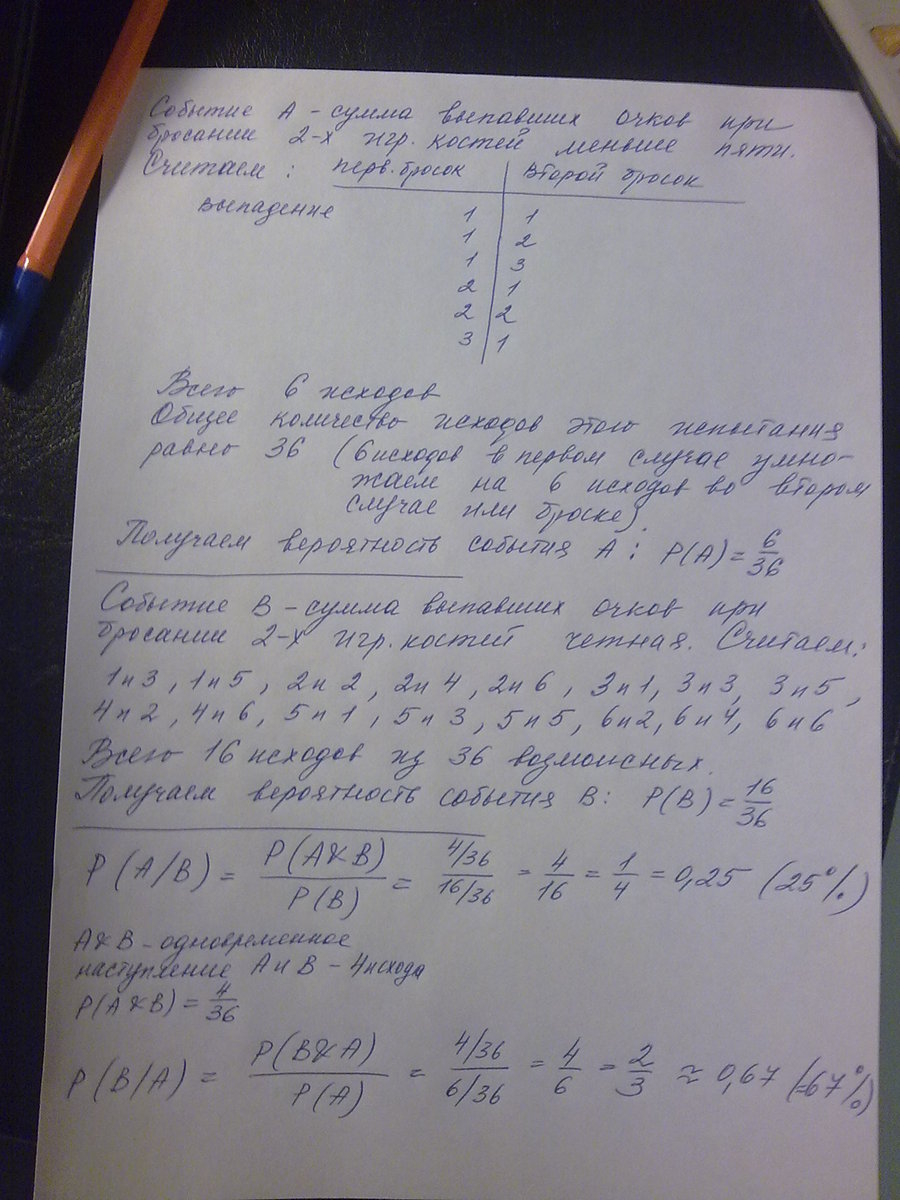 Событие А - сумма выпавших очков при
бросании 2-х игр. костей меньше пяти.
Считаем: перв. бросок | второй бросок
выпадение 1 | 1
1 | 2
1 | 3
2 | 1
2 | 2
3 | 1
Всего 6 исходов
Общее количество исходов этого испытания
равно 36 (6 исходов в первом случае умно-
жаем на 6 исходов во втором
случае или броске)
Получаем вероятность события А: P(A) = 6/36
Событие В - сумма выпавших очков при
бросании 2-х игр. костей четная. Считаем:
1 и 3, 1 и 5, 2 и 2, 2 и 4, 2 и 6, 3 и 1, 3 и 3, 3 и 5,
4 и 2, 4 и 6, 5 и 1, 5 и 3, 5 и 5, 6 и 2, 6 и 4, 6 и 6
Всего 16 исходов из 36 возможных.
Получаем вероятность события В: P(B) = 16/36
P(A/B) = P(A&B)/P(B) = (4/36)/(16/36) = 4/16 = 1/4 = 0,25 (25%)
A&B - одновременное
наступление А и В - 4 исхода
P(A&B) = 4/36
P(B/A) = P(B&A)/P(A) = (4/36)/(6/36) = 4/6 = 2/3 ≈ 0,67 (≈67%)